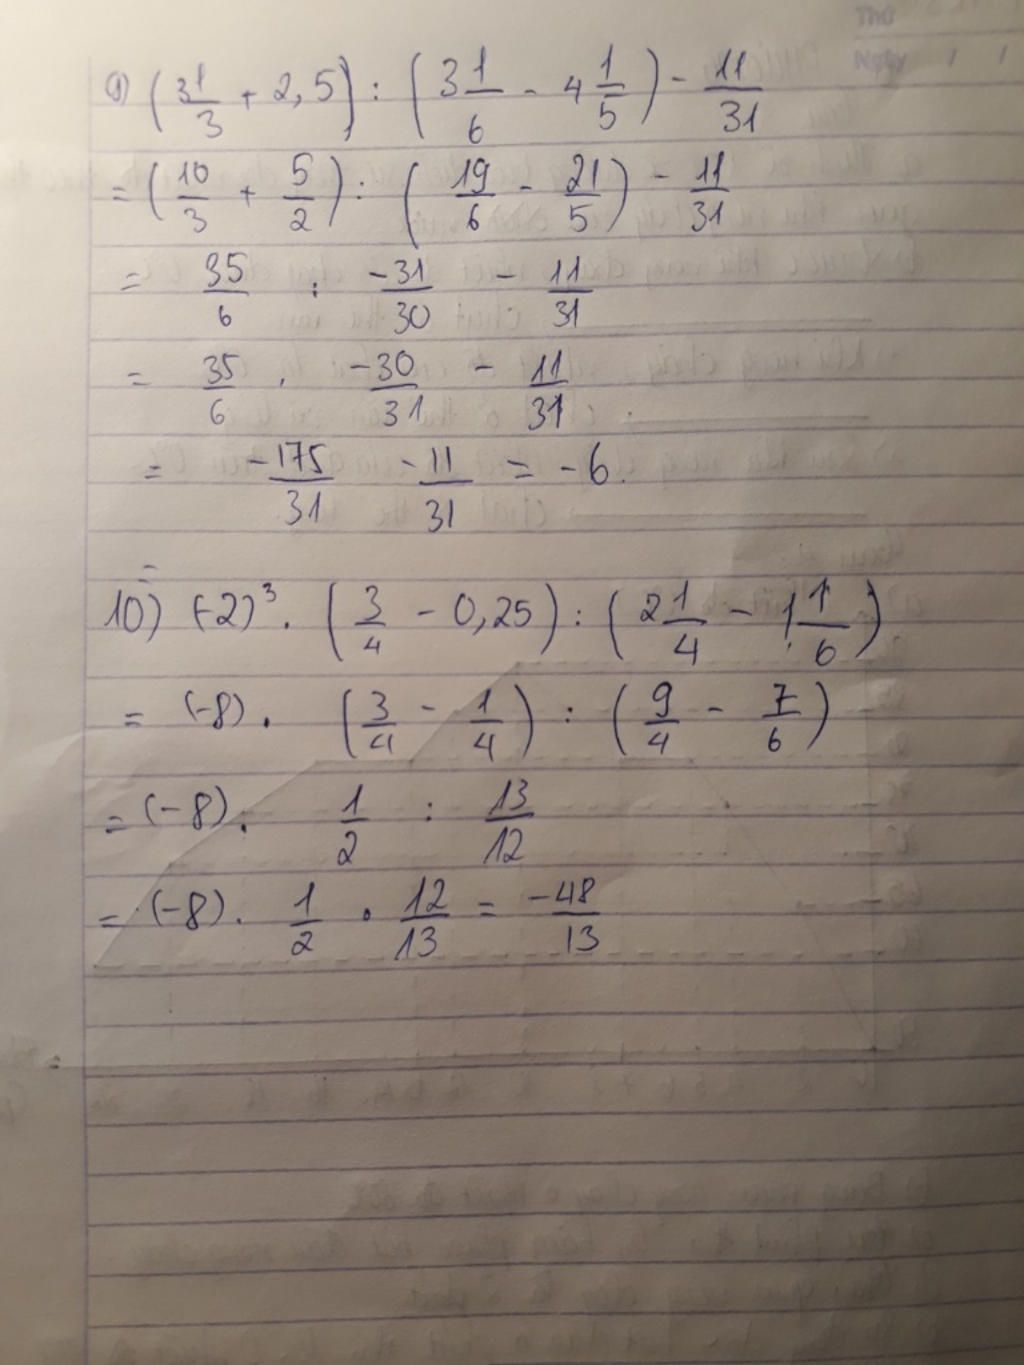 Thứ
Ngày / /
9) (3 1/3 + 2,5) : (3 1/6 - 4 1/5) - 11/31
= (10/3 + 5/2) : (19/6 - 21/5) - 11/31
= 35/6 : -31/30 - 11/31
= 35/6 . -30/31 - 11/31
= -175/31 - 11/31 = -6.
=
10) (-2)³ . (3/4 - 0,25) : (2 1/4 - 1 1/6)
= (-8) . (3/4 - 1/4) : (9/4 - 7/6)
= (-8) . 1/2 : 13/12
= (-8) . 1/2 . 12/13 = -48/13